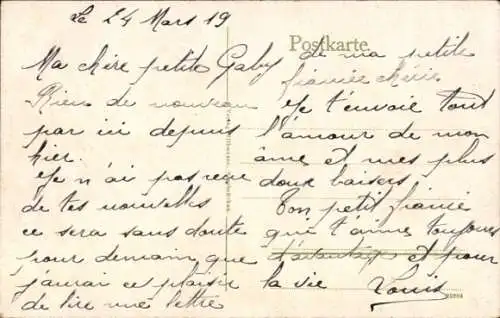 Le 24 Mars 19
Postkarte.
Ma chère petite Gaby
Rien de nouveau
par ici depuis
hier.
Je n'ai pas reçu
de tes nouvelles
ce sera sans doute
pour demain que
j'aurai ce plaisir
de lire une lettre
de ma petite
fiancée chérie
Je t'envoie tout
l'amour de mon
âme et mes plus
doux baisers.
Ton petit fiancé
qui t'aime toujours
davantage et pour
la vie Louis